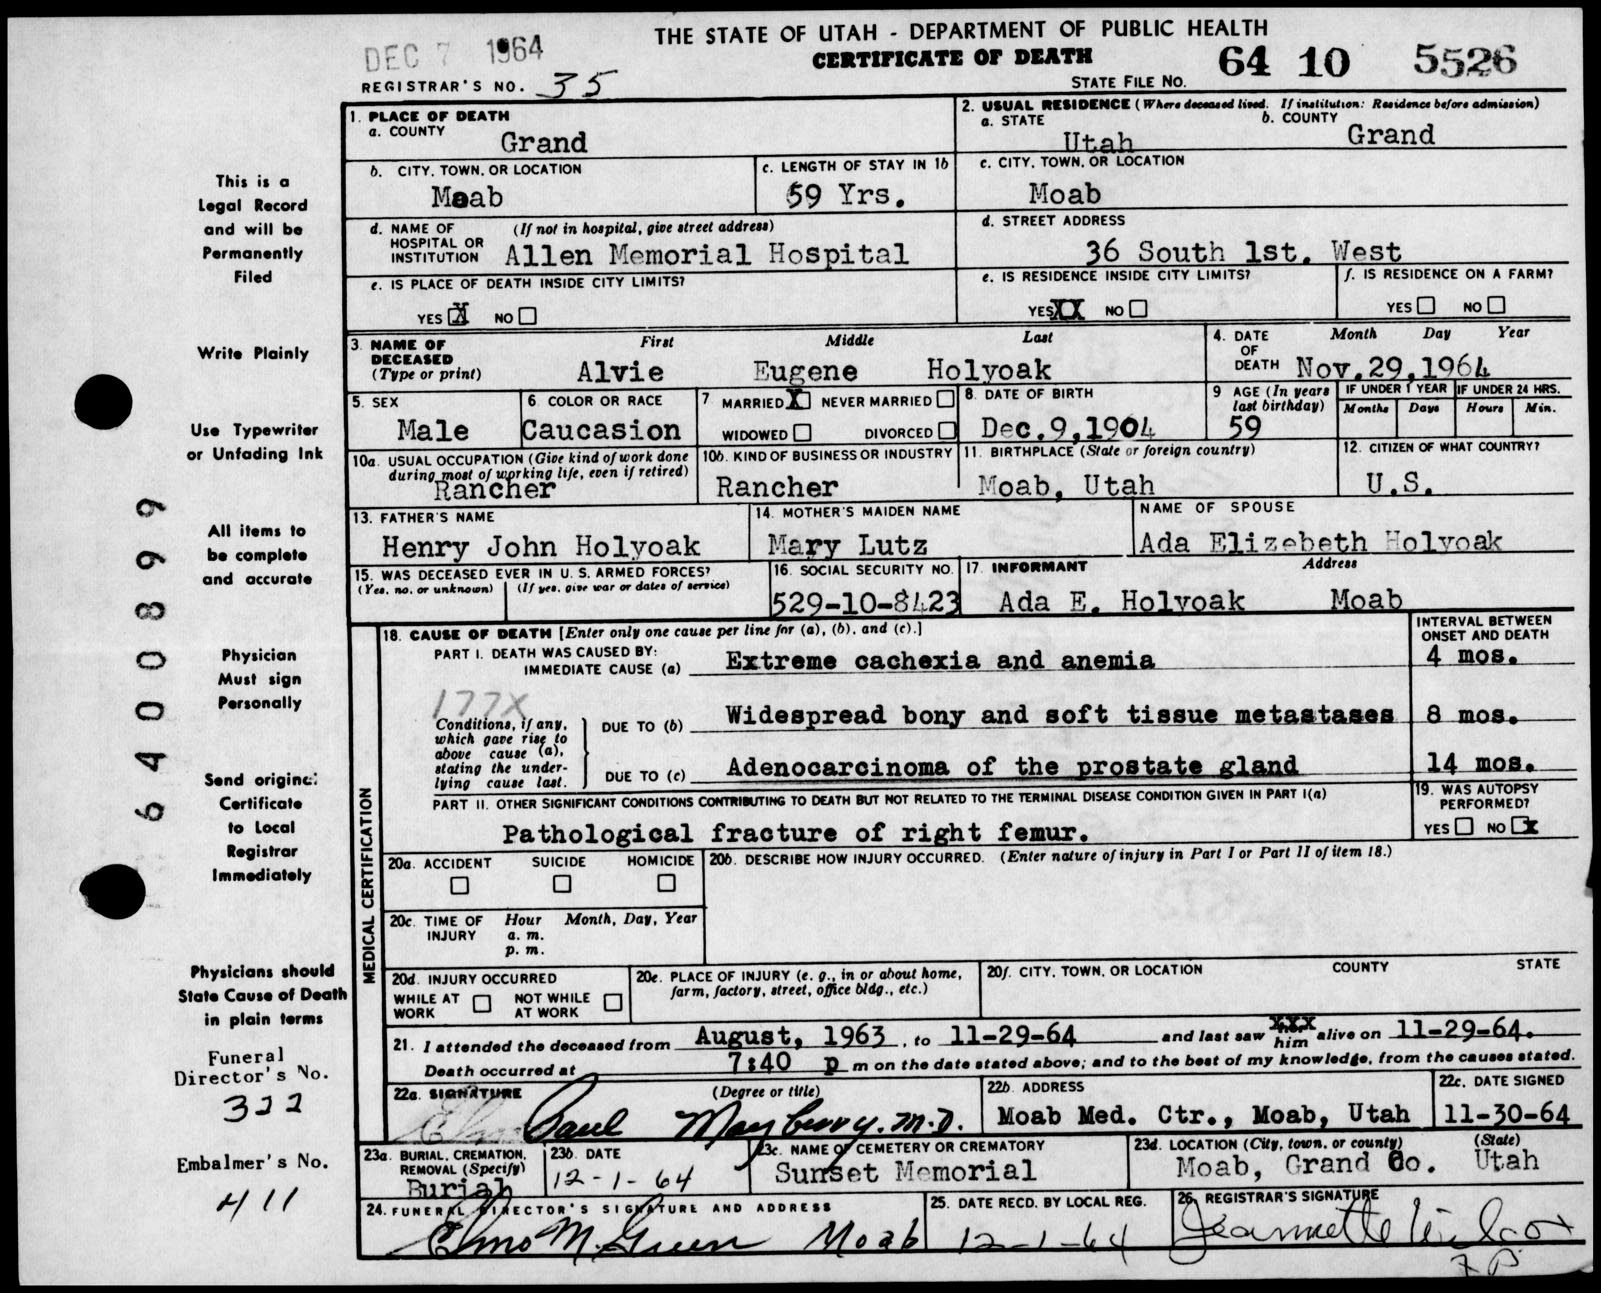 THE STATE OF UTAH - DEPARTMENT OF PUBLIC HEALTH
CERTIFICATE OF DEATH
DEC 7 1964
REGISTRAR'S NO. 35
STATE FILE NO. 64 10 5526
This is a
Legal Record
and will be
Permanently
Filed
Write Plainly
Use Typewriter
or Unfading Ink
All items to
be complete
and accurate
Physician
Must sign
Personally
Send original
Certificate
to Local
Registrar
Immediately
Physicians should
State Cause of Death
in plain terms
Funeral
Director's No.
322
Embalmer's No.
411
6400899
1. PLACE OF DEATH
a. COUNTY
Grand
2. USUAL RESIDENCE (Where deceased lived. If institution: Residence before admission)
a. STATE b. COUNTY
Utah Grand
b. CITY, TOWN, OR LOCATION
Moab
c. LENGTH OF STAY IN 1b
59 Yrs.
c. CITY, TOWN, OR LOCATION
Moab
d. NAME OF HOSPITAL OR INSTITUTION (If not in hospital, give street address)
Allen Memorial Hospital
d. STREET ADDRESS
36 South 1st. West
e. IS PLACE OF DEATH INSIDE CITY LIMITS?
YES X NO
e. IS RESIDENCE INSIDE CITY LIMITS?
YES XX NO
f. IS RESIDENCE ON A FARM?
YES NO
3. NAME OF DECEASED (Type or print)
First Middle Last
Alvie Eugene Holyoak
4. DATE OF DEATH Month Day Year
Nov.29,1964
5. SEX
Male
6 COLOR OR RACE
Caucasion
7 MARRIED X NEVER MARRIED
WIDOWED DIVORCED
8. DATE OF BIRTH
Dec.9,1904
9 AGE (In years last birthday)
59
IF UNDER 1 YEAR IF UNDER 24 HRS.
Months Days Hours Min.
10a. USUAL OCCUPATION (Give kind of work done during most of working life, even if retired)
Rancher
10b. KIND OF BUSINESS OR INDUSTRY
Rancher
11. BIRTHPLACE (State or foreign country)
Moab, Utah
12. CITIZEN OF WHAT COUNTRY?
U.S.
13. FATHER'S NAME
Henry John Holyoak
14. MOTHER'S MAIDEN NAME
Mary Lutz
NAME OF SPOUSE
Ada Elizebeth Holyoak
15. WAS DECEASED EVER IN U.S. ARMED FORCES?
(Yes, no, or unknown) (If yes, give war or dates of service)
16. SOCIAL SECURITY NO.
529-10-8423
17 INFORMANT Address
Ada E. Holyoak Moab
MEDICAL CERTIFICATION
18. CAUSE OF DEATH [Enter only one cause per line for (a), (b), and (c).]
INTERVAL BETWEEN ONSET AND DEATH
PART I. DEATH WAS CAUSED BY:
IMMEDIATE CAUSE (a) Extreme cachexia and anemia 4 mos.
177X
Conditions, if any, which gave rise to above cause (a), stating the underlying cause last.
DUE TO (b) Widespread bony and soft tissue metastases 8 mos.
DUE TO (c) Adenocarcinoma of the prostate gland 14 mos.
PART II. OTHER SIGNIFICANT CONDITIONS CONTRIBUTING TO DEATH BUT NOT RELATED TO THE TERMINAL DISEASE CONDITION GIVEN IN PART I(a)
Pathological fracture of right femur.
19. WAS AUTOPSY PERFORMED?
YES NO X
20a. ACCIDENT SUICIDE HOMICIDE
20b. DESCRIBE HOW INJURY OCCURRED. (Enter nature of injury in Part I or Part II of item 18.)
20c. TIME OF INJURY Hour Month, Day, Year
a. m.
p. m.
20d. INJURY OCCURRED
WHILE AT WORK NOT WHILE AT WORK
20e. PLACE OF INJURY (e. g., in or about home, farm, factory, street, office bldg., etc.)
20f. CITY, TOWN, OR LOCATION COUNTY STATE
21. I attended the deceased from August, 1963, to 11-29-64 and last saw XXX him alive on 11-29-64.
Death occurred at 7:40 p m on the date stated above; and to the best of my knowledge, from the causes stated.
22a. SIGNATURE (Degree or title)
Paul Mayberry, M.D.
22b. ADDRESS
Moab Med. Ctr., Moab, Utah
22c. DATE SIGNED
11-30-64
23a. BURIAL, CREMATION, REMOVAL (Specify)
Burial
23b. DATE
12-1-64
23c. NAME OF CEMETERY OR CREMATORY
Sunset Memorial
23d. LOCATION (City, town, or county) (State)
Moab, Grand Co. Utah
24. FUNERAL DIRECTOR'S SIGNATURE AND ADDRESS
Elmo M. Green Moab
25. DATE RECD. BY LOCAL REG.
12-1-64
26. REGISTRAR'S SIGNATURE
Jeannette Wilcox